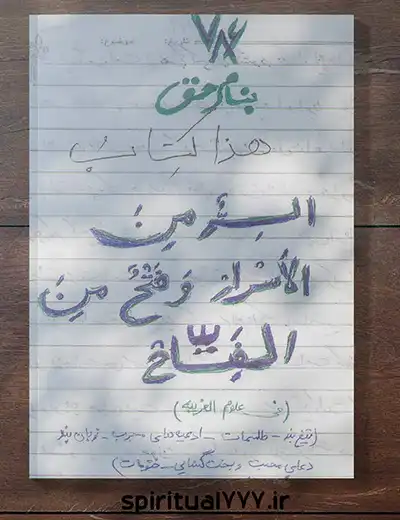 ۷۸۶
بنام حق
هذا كِتَابُ
السِرُّ مِنَ
الأَسْرارِ وَفَتْحُ مِنَ
الفَتَّاحْ
(فی علوم الغریبه)
(تیغ بند - طلسمات - ادعیه های مجرب - زبان بند
دعای محبت و بخت گشایی - ختومات)
spiritualYYY.ir